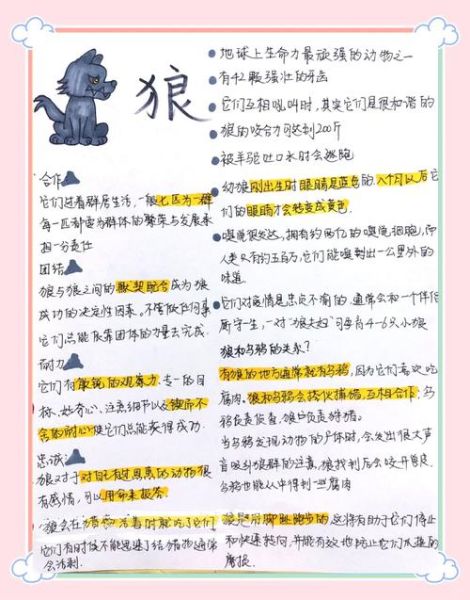 狼
合作
它们过着群居生活,一般七匹为一群
每一匹都要为群体的繁荣与发展承
担一分责任
团结
狼与狼之间的默契配合成为狼
成功的决定性因素。不管做任何事
它们总能依靠团体的力量去完成.
耐力
它们有敏锐的观察力.专一的目
标、好奇心、注意细节以及锲而不
舍的耐心使它们总能获得成功.
忠诚
狼对于对自己有过恩惠的动物很
有感情,可以用命来报答
狼会在猎物活着时就吃了它们
它们有时候不能迅速了结猎物通常
会活剥.
地球上生命力最顽强的动物之一
有42颗强壮的牙齿
它们互相吼叫时,其实它们是很和谐的
狼的咬合力可达到200斤
被羊驼吐口水时会逃跑
幼狼刚出生时眼睛是蓝色的.八个月以后它
们的眼睛才会转变成黄色.
嗅觉很发达,拥有约两亿的嗅觉细胞,而
人类只有约五百万,它们能嗅到出一公里外的
味道.
它们对感情是忠贞不渝的.通常会和一个伴侣
厮守一生,一对“狼夫妇”可孕育4-6只小狼
狼和乌鸦的关系?
有狼的地方通常就有乌鸦,因为它们喜欢吃
腐肉。狼和乌鸦会搭伙捕猎,互相合作;乌
鸦负责侦查,狼只负责狩猎。
当乌鸦发现动物的尸体时,会发出很大声
音吸引狼群的注意,狼找到后会咬开兽皮.
乌鸦也能从中得到一些腐肉
狼是用脚趾跑步的这将有助于它们停止
和快速转向,并能有效地防止它们爪垫的
磨损.